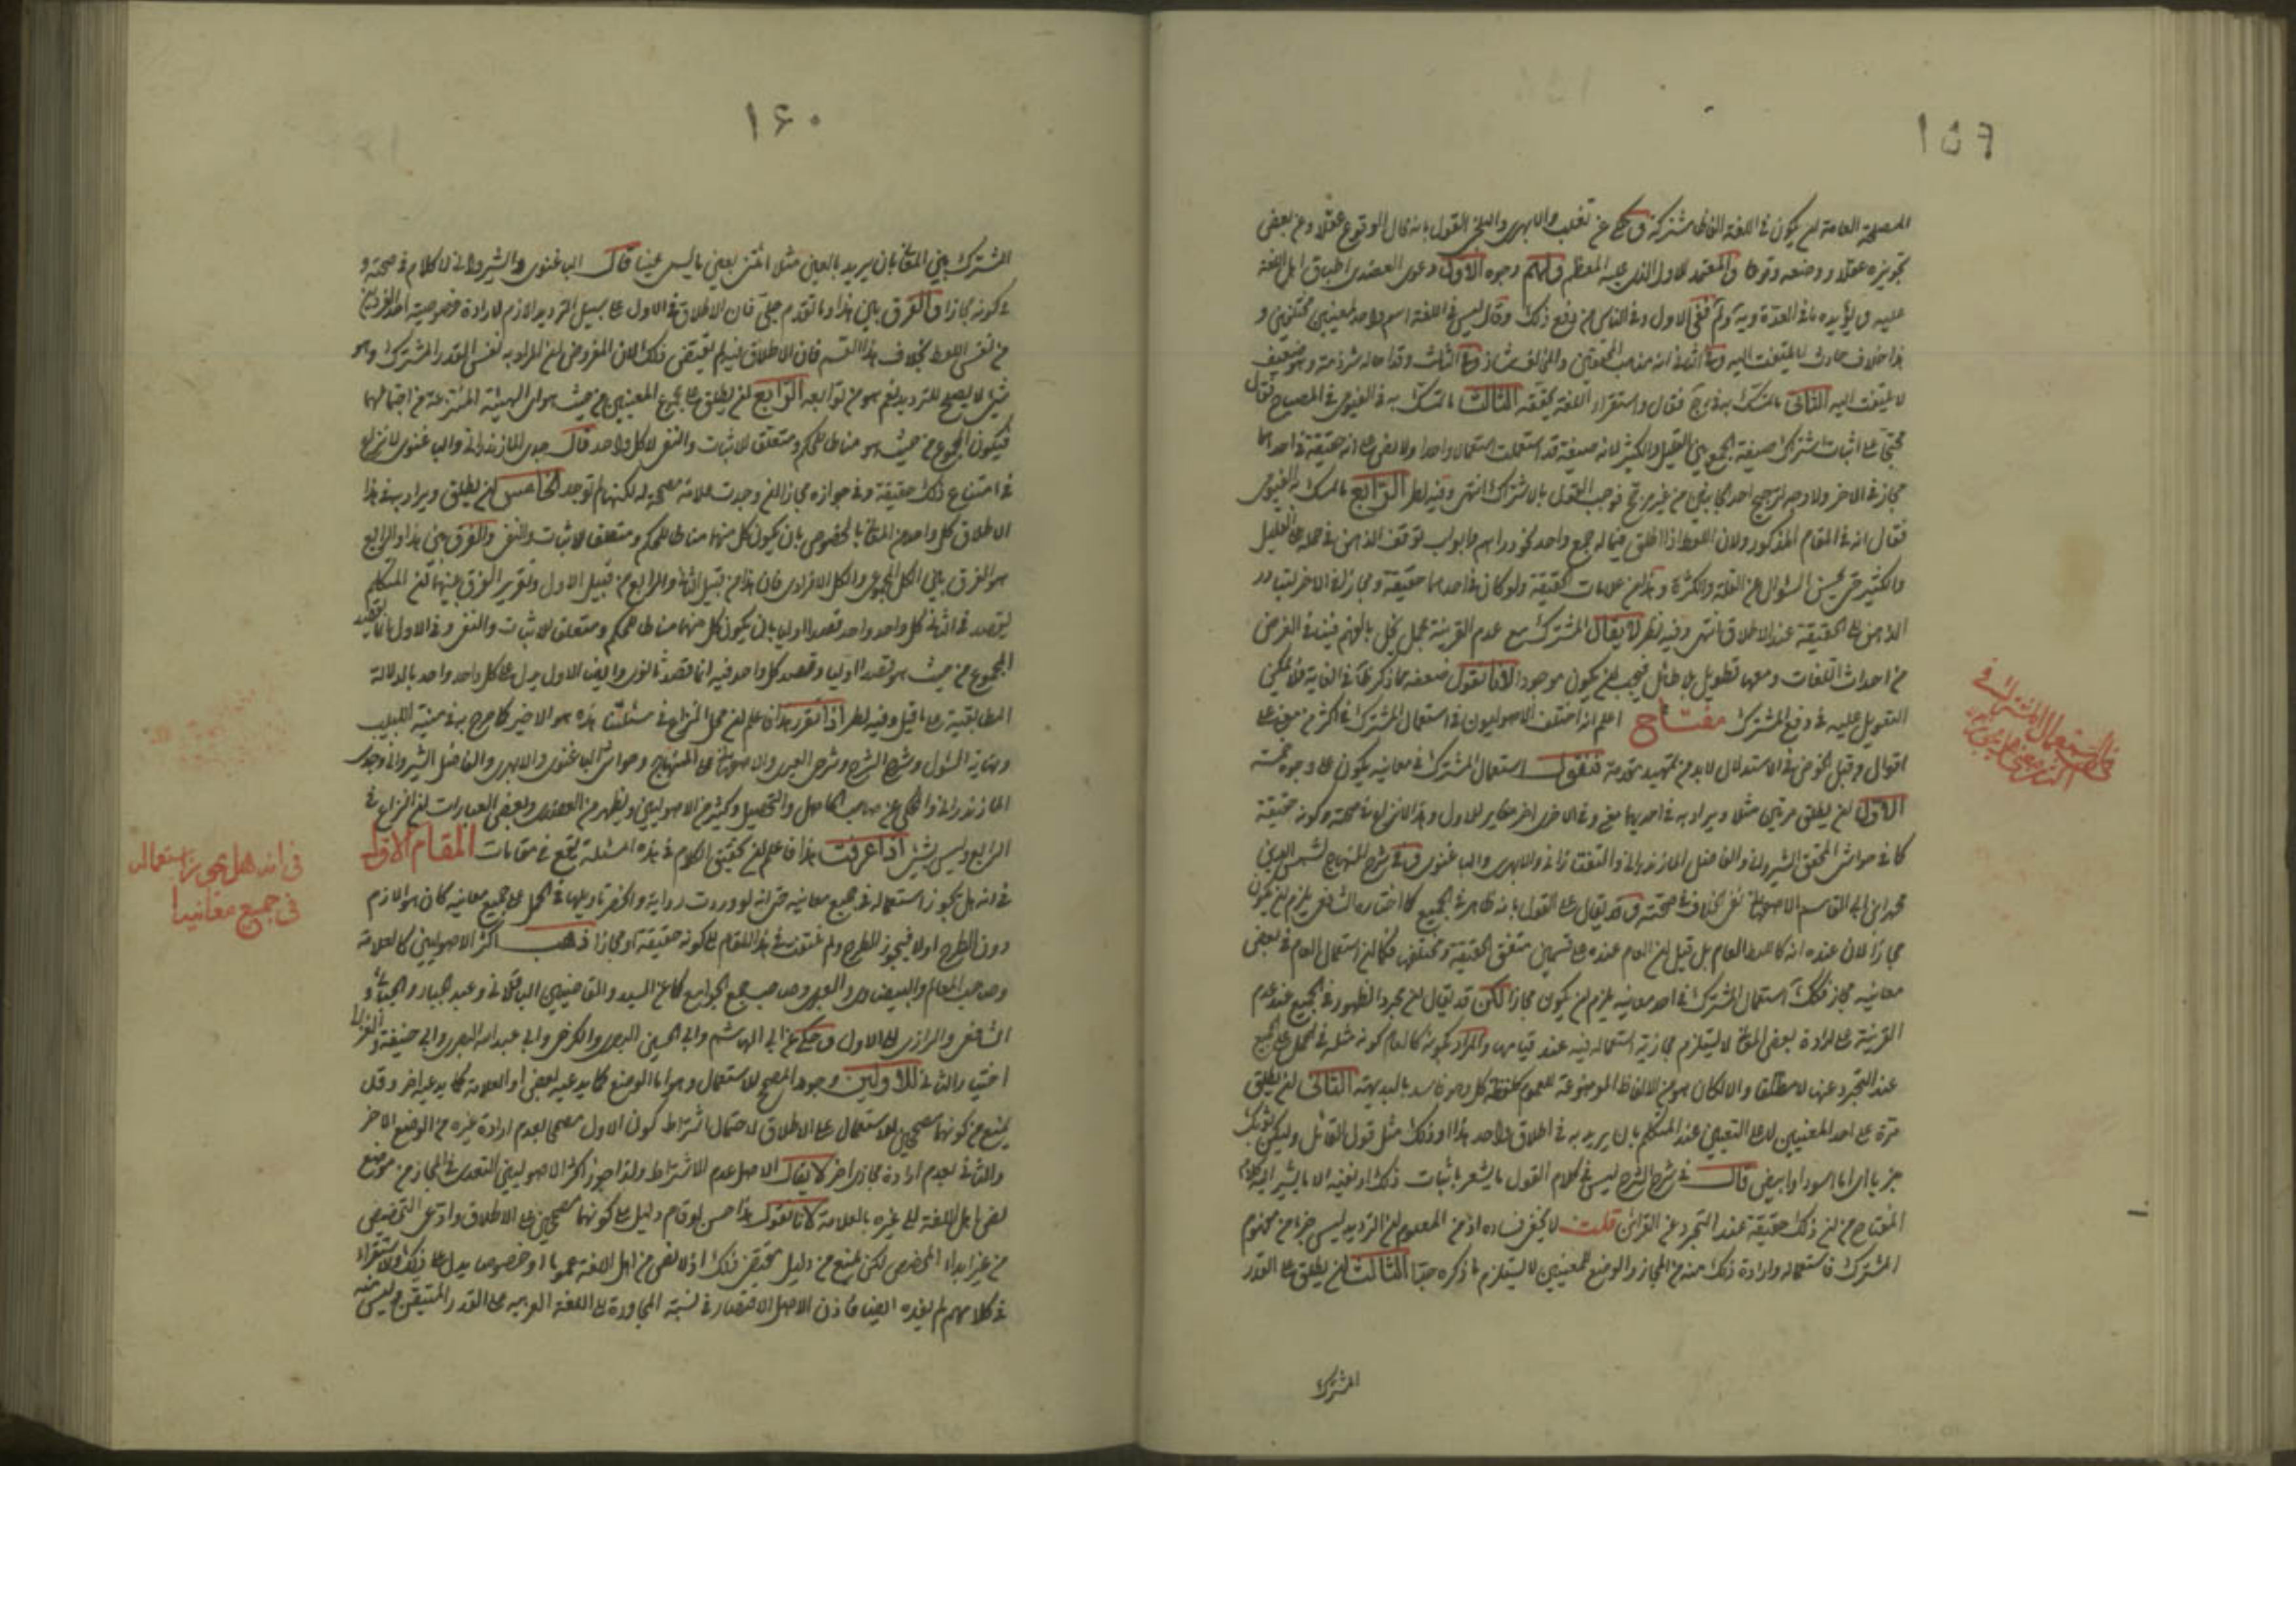 ١٥٩
المصلحة العامة ان يكون في اللغة الفاظ مشتركة وحكي عن تغلب والابهري والبلخي القول بانه محال الوقوع عقلا وعن بعض
تجويزه عقلا ووضعه وقوعا والمعتمد للاول الذي عليه المعظم ولهم وجوه الاول دعوى العضدي اطباق اهل اللغة
عليه ويؤيده ما في العدة وية ولم في الاول وفي الناس من دفع ذلك وقال ليس في اللغة اسم واحد لمعنيين مختلفين و
هذا خلاف حادث لا يلتفت اليه وفي الثاني انه مذهب المحققين والمخالف شاذ وفي الثالث وقد احاله شرذمة وهو ضعيف
لا يلتفت اليه الثاني ما تمسك به في فقال واستقراء اللغة يحققه الثالث ما تمسك به الفيومي في المصباح فقال
محتجا على اثبات اشتراك صيغة الجمع بين القليل والكثير لانه صيغة قد استعملت استعمالا واحدا ولا نص على انه حقيقة في احدهما
مجاز في الاخر ولا وجه لترجيح احد الجانبين من غير مرجح فوجب القول بالاشتراك انتهى وفيه نظر الرابع ما تمسك به الفيومي
فقال انه في المقام المذكور ولان اللفظ اذا اطلق فيما له جمع واحد نحو دراهم وابواب توقف الذهن في حمله على القليل
والكثير حتى يحسن السؤال عن القلة والكثرة وهذا من علامات الحقيقة ولو كان في احدهما حقيقة ومجازا في الاخر لتبادر
الذهن الى الحقيقة عند الاطلاق انتهى وفيه نظر لا يقال المشترك مع عدم القرينة مجمل يخل بالفهم فينفي الغرض
من احداث اللغات ومعها تطويل بلا طائل فيجب ان لا يكون موجودا لانا نقول ضعفه مما ذكر ظاهر في الغاية فلا يمكن
التعويل عليه في دفع المشترك مفتاح اعلم انه اختلف الاصوليون في استعمال المشترك في اكثر من معنى على
اقوال وقبل الخوض في الاستدلال لا بد من تمهيد مقدمة فنقول استعمال المشترك في معانيه يكون على وجوه خمسة
الاول ان يطلق مرتين مثلا ويراد به في احديهما معنى وفي الاخرى اخر مغاير للاول وهذا لا نزاع في صحته وكونه حقيقة
كما في حواشي المحقق الشيرواني والفاضل المازندراني والتفتازاني والابهري والباغنوي وفي شرح المنهاج لشمس الدين
محمد ابن ابي القاسم الاصبهاني نفي الخلاف في صحته وقد يقال على القول بانه ظاهر في الجميع كما اختاره الشافعي يلزم ان يكون
مجازا لان عنده انه كالفظ العام بل قيل ان العام عنده على قسمين متفق الحقيقة ومختلفها فكما ان استعمال العام في بعض
معانيه مجاز فكك استعمال المشترك في احد معانيه يلزم ان يكون مجازا لكن قد يقال ان مجرد الظهور في الجميع عند عدم
القرينة على ارادة بعض المعاني لا يستلزم مجازية استعماله فيه عند قيامها والمراد بكونه كالعام كونه مثله في الحمل على الجميع
عند التجرد عنها لا مطلقا والا لكان هو من الالفاظ الموضوعة للعموم كلفظة كل وهو فاسد بالبديهة الثاني ان يطلق
مرة على احد المعنيين لا على التعيين عند المتكلم بان يريد به في اطلاق واحد هذا او ذلك مثل قول القائل وليكن ثوبك
جونا اي اما اسود او ابيض قال في شرح الشرح ليس في كلام القول ما يشعر باثبات ذلك او نفيه الا ما يشير اليه كلام
المفتاح من ان ذلك حقيقة عند التجرد عن القرائن قلت لا يخفى فساده اذ من المعلوم ان الترديد ليس جزء من مفهوم
المشترك فاستعماله وارادة ذلك منه من المجاز والوضع للمعنيين لا يستلزم ما ذكره جدا الثالث ان يطلق على القدر
المشترك
في استعمال المشترك في
١٦٠
المشترك بين المعاني بان يريد بالعين مثلا ائتني بعين ما ليس عينا قال الباغنوي والشيرواني لا كلام في صحته و
في كونه مجازا والفرق بين هذا وما تقدم جلي فان الاطلاق في الاول على سبيل الترديد لازم لارادة خصوصية احد الفردين
من نفس اللفظ بخلاف هذا القسم فان الاطلاق فيه لم يقتض ذلك لان المفروض ان المراد به نفس القدر المشترك وهو
شيء لا يصلح للترديد نعم هو من توابعه الرابع ان يطلق على مجموع المعنيين من حيث هو اي الهيئة المنتزعة من اجتماعهما
فيكون المجموع من حيث هو مناطا للحكم ومتعلق الاثبات والنفي لا كل واحد قال جدي المازندراني والباغنوي لا نزاع
في امتناع ذلك حقيقة وفي جوازه مجازا ان وجدت علاقة مصححة له لكنها لم توجد الخامس ان يطلق ويراد به في هذا
الاطلاق كل واحد من المعاني بالخصوص بان يكون كل منهما مناطا للحكم ومتعلقا للاثبات والنفي والفرق بين هذا والرابع
هو الفرق بين الكل المجموعي والكل الافرادي فان هذا من قبيل الثاني والرابع من قبيل الاول وتقرير الفرق بينهما ان المتكلم
يقصد في الثاني كل واحد واحد قصدا اوليا بان يكون كل منهما مناطا للحكم ومتعلقا للاثبات والنفي وفي الاول انما يقصد
المجموع من حيث هو قصدا اوليا وقصد كل واحد فيه انما قصد ثانوي وايضا الاول يدل على كل واحد واحد بالدلالة
المطابقية على ما قيل وفيه نظر اذا تقرر هذا فاعلم ان محل النزاع في مسئلتنا هذه هو الاخير كما صرح به في منية اللبيب
ونهاية السئول وشرح الشرح وشرحي العبري والاصبهاني على المنهاج وحواشي الباغنوي والابهري والفاضل الشيرواني وجدي
المازندراني والمحكي عن صاحب الحاصل والتحصيل وكثير من الاصوليين ويظهر من العضدي وبعض العبارات ان النزاع في
الرابع وليس بشيء اذا عرفت هذا فاعلم ان تحقيق الكلام في هذه المسئلة يقع في مقامات المقام الاول
في انه هل يجوز استعماله في جميع معانيه حتى انه لو وردت رواية وانحصر تاويلها في الحمل على جميع معانيه كان هو اللازم
دون الطرح اولا فيجوز الطرح ولم نلتفت في هذا المقام الى كونه حقيقة او مجازا فذهب اكثر الاصوليين كالعلامة
وصاحب المعالم والبيضاوي والعبري وصاحب جمع الجوامع كما عن السيد والقاضيين الباقلاني وعبد الجبار والجبائي و
الشافعي والرازي الى الاول وحكي عن ابي الهاشم وابي الحسين البصري والكرخي وابي عبد الله البصري وابي حنيفة والغزالي
اختيار الثاني للاولين وجود المصحح للاستعمال وهو اما الوضع كما يدعيه بعض او العلاقة كما يدعيه اخر وقد
يمنع من كونهما مصححين للاستعمال على الاطلاق لاحتمال اشتراط كون الاول مصححا بعدم ارادة غيره من الوضع الاخر
والثاني بعدم ارادة مجازي اخر لا يقال الاصل عدم الاشتراط ولذا جوز اكثر الاصوليين التعدي في المجاز من موضع
نص اهل اللغة الى غيره بالعلاقة لانا نقول هذا حسن لو قام دليل على كونهما مصححين على الاطلاق وادعى التخصيص
من غير ابداء المخصص لكن نمنع من دليل يقتضي ذلك اذ لا نص من اهل اللغة عموما او خصوصا يدل على ذلك والاستقراء
في كلامهم لم يفده ايضا فاذن الاصل الاقتصار في نسبة المجاورة الى اللغة العربية على القدر المتيقن وليس منه
في انه هل يجوز استعماله
في جميع معانيه